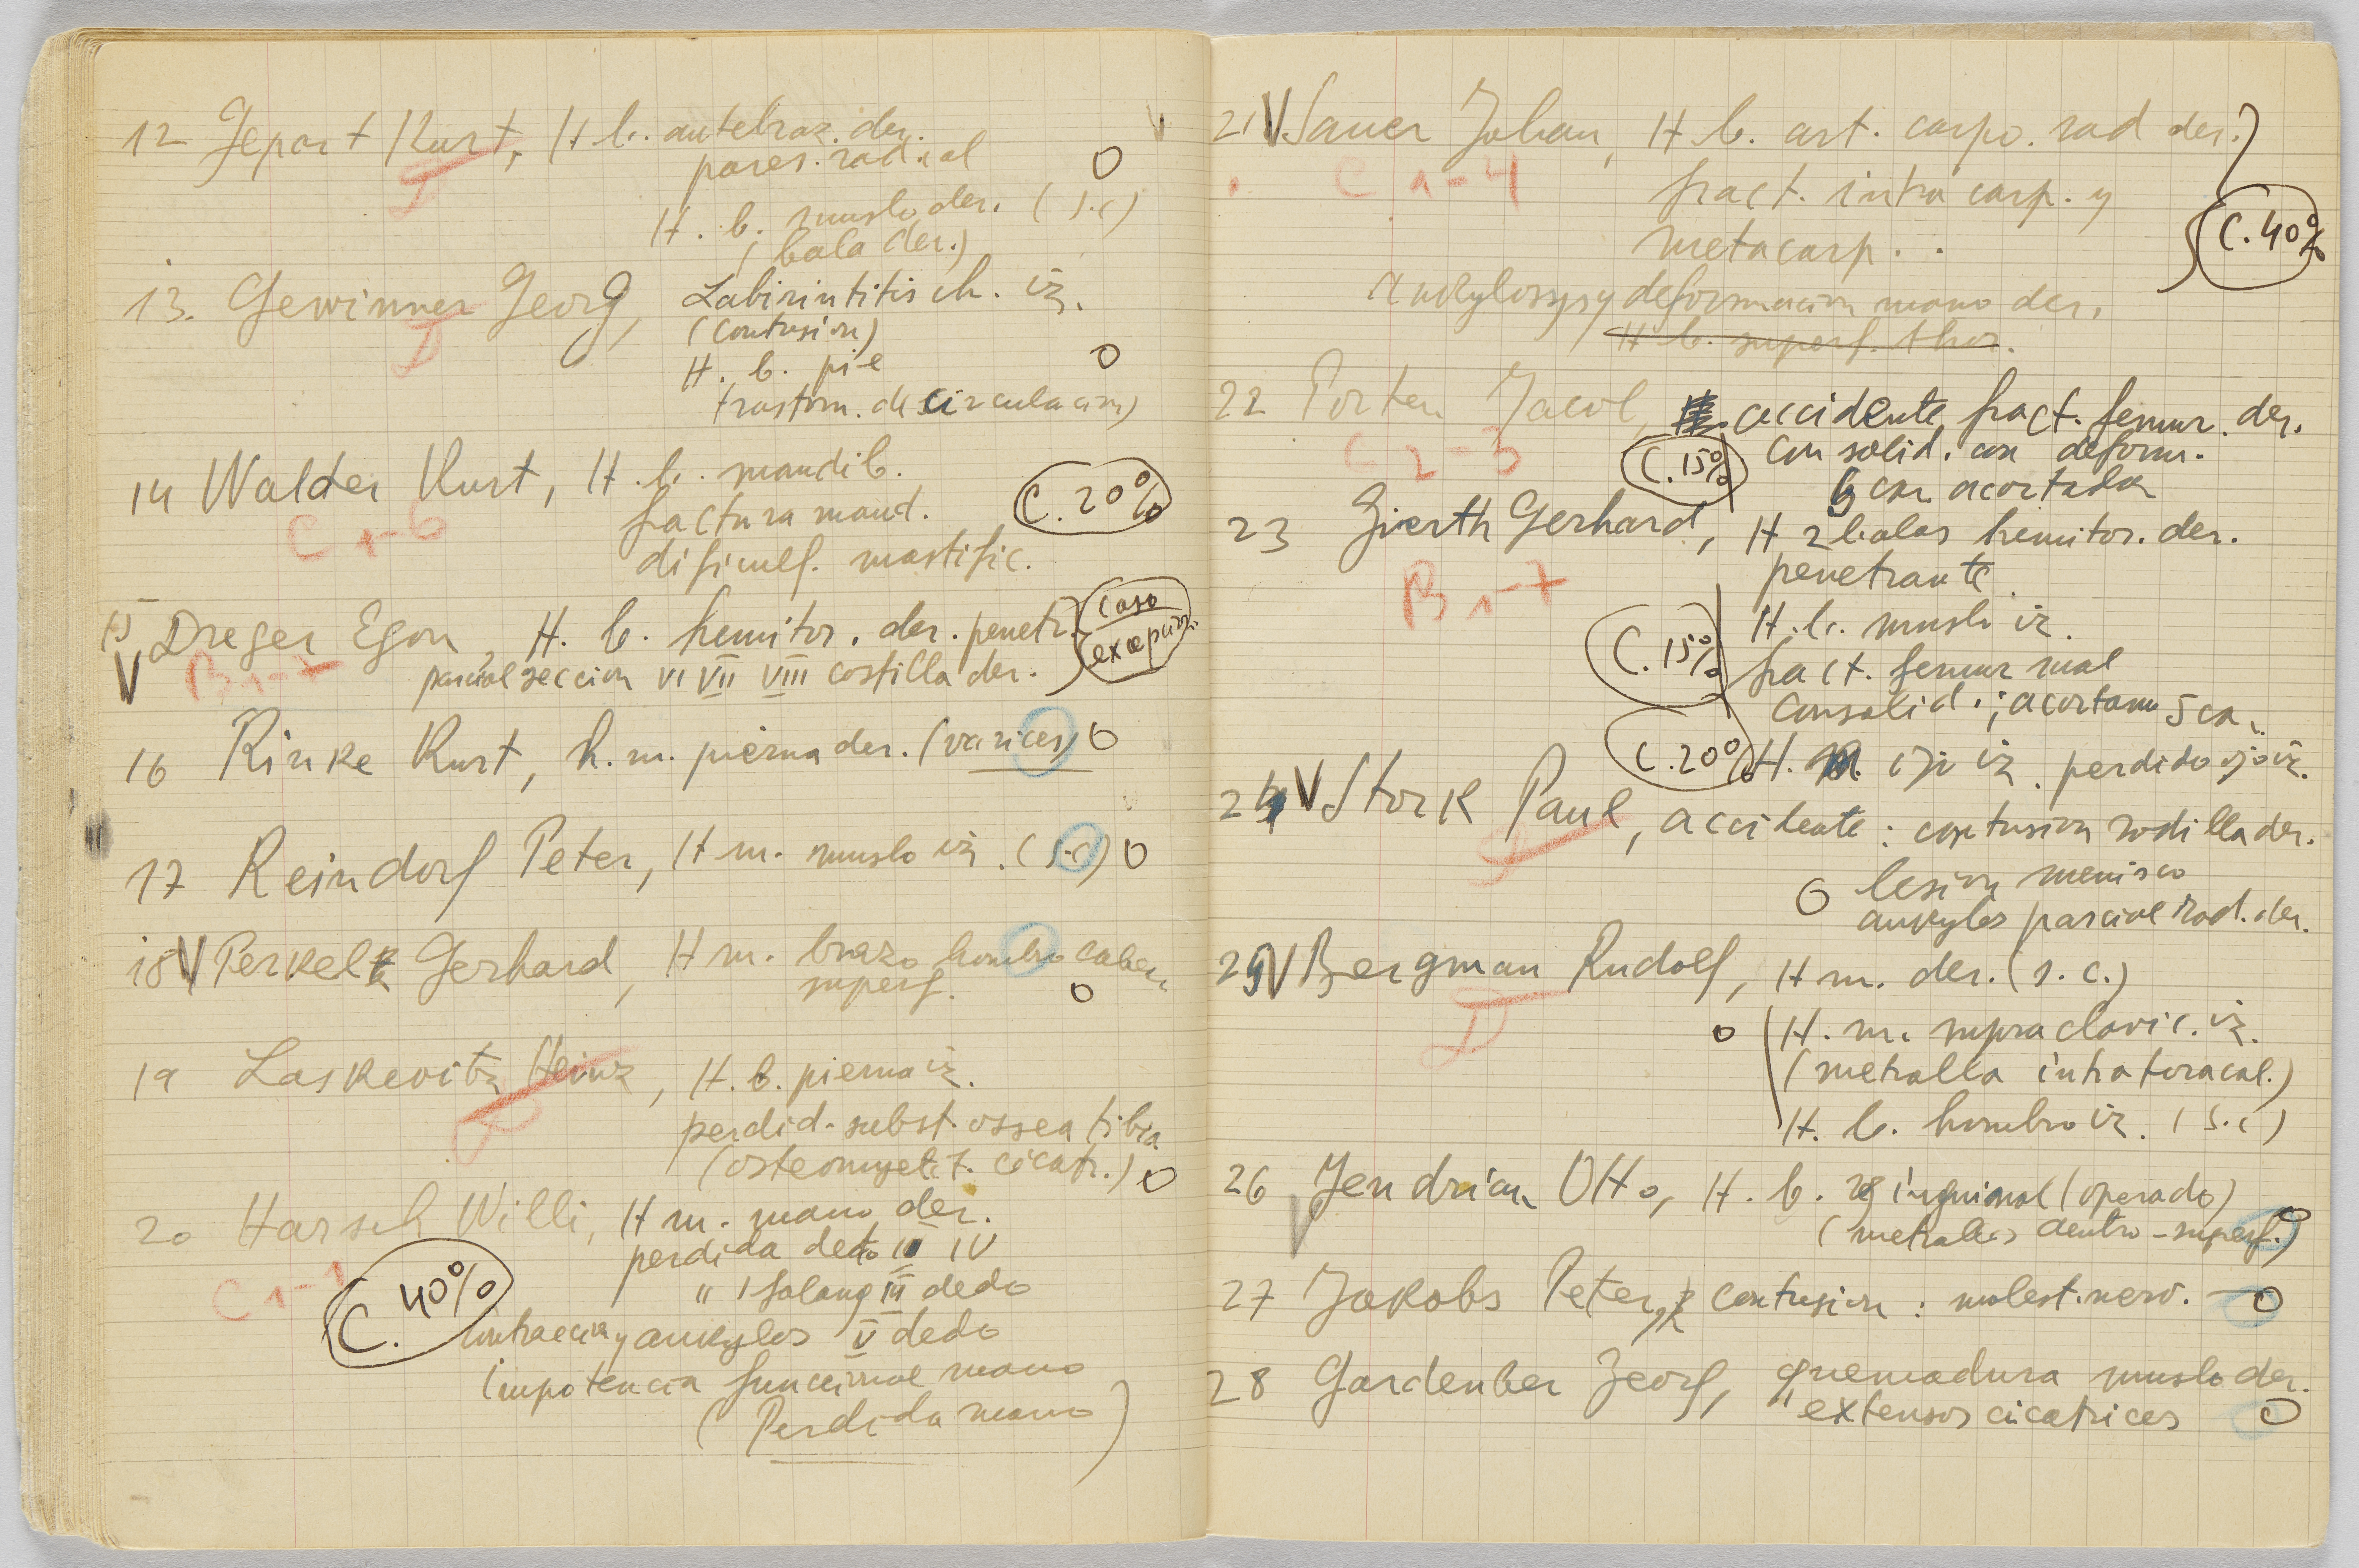 12 Jepart Kurt, H b. antebraz. der.
pares. radial O
D
H. b. muslo der. (s.c)
(bala der.)
13. Gewinner Georg, Labirintitis ch. iz.
D
(contusion)
H. b. pie O
trastorn. de circulacion)
14 Walder Kurt, H. b. mandib.
C 1-6
fractura mand. C. 20%
dificult. mastific.
15 V Dreger Egon, H. b. hemitor. der. penetr. caso
B 1-7
parcial seccion VI VII VIII costilla der.
16 Rinke Kurt, h. m. pierna der. (varices) O
17 Reindorf Peter, H m. muslo iz. (s.c) O
18 V Perkelt Gerhard, H m. brazo hombro cabez.
superf. O
19 Laskevitz Heinz, H. b. pierna iz.
D
perdid. subst. ossea tibia
(osteomyelit. cicatr.) O
20 Harsch Willi, H m. mano der.
perdida dedo II IV
" 1 falang III dedo
C 1-1
C. 40%
contraccion y ankylos V dedo
impotencia funccional mano
(Perdida mano)
V
21 V Sauer Johan, H b. art. carpo. rad der.
C 1-4
fract. intra carp. y
metacarp.
C. 40%
Ankylosys y deformacion mano der.
H b. superf. thor.
22 Porten Jacob, accidente, fract. femur. der.
C 2-3
C. 15% consolid. con deform.
6 cm acortada
23 Gierth Gerhard, H 2 balas hemitor. der.
penetrante
B 1-7
H. b. muslo iz.
C. 15% fract. femur mal
consolid.; acortam 5 cm.
C. 20% H. m. ojo iz. perdido ojo iz.
24 V Stork Paul, accidente: contusion rodilla der.
D
O lesion menisco
ankylos parcial rod. der.
25 V Bergman Rudolf, H m. der. (s. c.)
D
O H. m. supraclavic. iz.
(metralla intratoracal.)
H. b. hombro iz. (s.c)
26 V Jendrian Otto, H. b. inguinal (operado)
(metralla dentro - superf.) O
27 Jakobs Peter, contusion: molest. nerv. - O
28 Gardenber Georg, quemadura muslo der.
" extensos cicatrices O